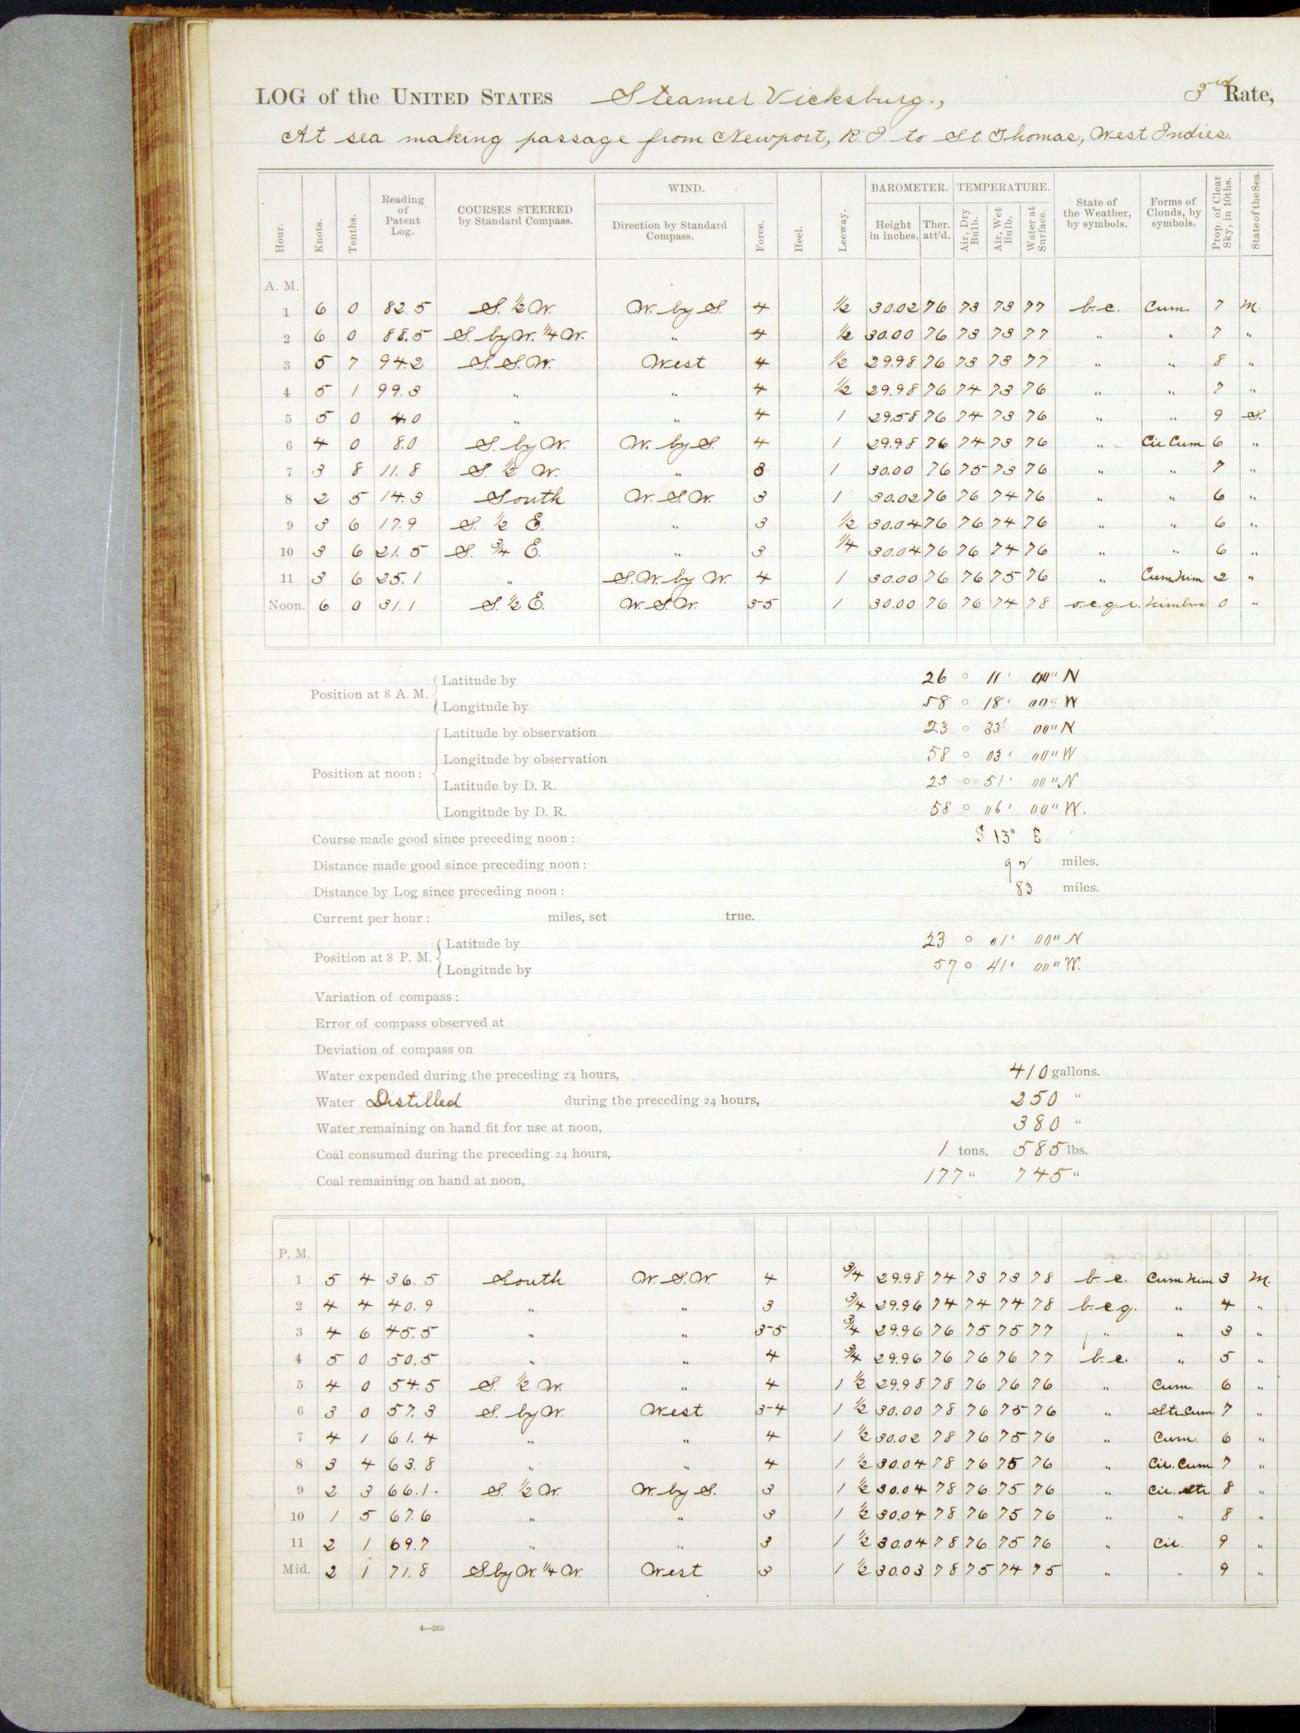 LOG of the UNITED STATES Steamer Vicksburg., 3rd Rate,
At sea making passage from Newport, R.I. to St. Thomas, West Indies.
Hour. Knots. Tenths. Reading of Patent Log. COURSES STEERED by Standard Compass. WIND. Direction by Standard Compass. Force. Heel. Leeway. BAROMETER. Height in inches. Ther. att'd. TEMPERATURE. Air, Dry Bulb. Air, Wet Bulb. Water at Surface. State of the Weather, by symbols. Forms of Clouds, by symbols. Prop. of Clear Sky, in 10ths. State of the Sea.
A. M.
1 6 0 82.5 S. ½ W. W. by S. 4 ½ 30.02 76 73 73 77 b.c. Cum. 7 M.
2 6 0 88.5 S. by W. ¼ W. " 4 ½ 30.00 76 73 73 77 " " 7 "
3 5 7 94.2 S.S.W. West 4 ½ 29.98 76 73 73 77 " " 8 "
4 5 1 99.3 " " 4 ½ 29.98 76 74 73 76 " " 7 "
5 5 0 4.0 " " 4 1 29.58 76 74 73 76 " " 9 S.
6 4 0 8.0 S. by W. W. by S. 4 1 29.98 76 74 73 76 " Cir Cum 6 "
7 3 8 11.8 S. ½ W. " 3 1 30.00 76 75 73 76 " " 7 "
8 2 5 14.3 South W.S.W. 3 1 30.02 76 76 74 76 " " 6 "
9 3 6 17.9 S. ½ E. " 3 ½ 30.04 76 76 74 76 " " 6 "
10 3 6 21.5 S. ¾ E. " 3 ¼ 30.04 76 76 74 76 " " 6 "
11 3 6 25.1 " S.W. by W. 4 1 30.00 76 76 75 76 " Cum Nim 2 "
Noon. 6 0 31.1 S. ½ E. W.S.W. 3-5 1 30.00 76 76 74 78 o.c.q.r. Nimbus 0 "
Position at 8 A. M. Latitude by 26 ° 11' 00" N
Longitude by 58 ° 18' 00" W
Position at noon: Latitude by observation 23 ° 33' 00" N
Longitude by observation 58 ° 03' 00" W
Latitude by D. R. 23 ° 51' 00" N
Longitude by D. R. 58 ° 06' 00" W.
Course made good since preceding noon: S 13° E
Distance made good since preceding noon: 92 miles.
Distance by Log since preceding noon: 83 miles.
Current per hour: miles, set true.
Position at 8 P. M. Latitude by 23 ° 01' 00" N
Longitude by 57 ° 41' 00" W.
Variation of compass:
Error of compass observed at
Deviation of compass on
Water expended during the preceding 24 hours, 410 gallons.
Water Distilled during the preceding 24 hours, 250 "
Water remaining on hand fit for use at noon, 380 "
Coal consumed during the preceding 24 hours, 1 tons, 585 lbs.
Coal remaining on hand at noon, 177 " 745 "
P. M.
1 5 4 36.5 South W.S.W. 4 ¾ 29.98 74 73 73 78 b.c. Cum Nim 3 M.
2 4 4 40.9 " " 3 ¾ 29.96 74 74 74 78 b.c.q. " 4 "
3 4 6 45.5 " " 3-5 ¾ 29.96 76 75 75 77 " " 3 "
4 5 0 50.5 " " 4 ¾ 29.96 76 76 76 77 b.c. " 5 "
5 4 0 54.5 S. ½ W. " 4 1 ½ 29.98 78 76 76 76 " Cum. 6 "
6 3 0 57.3 S. by W. West 3-4 1 ½ 30.00 78 76 75 76 " Str Cum 7 "
7 4 1 61.4 " " 4 1 ½ 30.02 78 76 75 76 " Cum. 6 "
8 3 4 63.8 " " 4 1 ½ 30.04 78 76 75 76 " Cir. Cum 7 "
9 2 3 66.1. S. ½ W. W. by S. 3 1 ½ 30.04 78 76 75 76 " Cir. Str 8 "
10 1 5 67.6 " " 3 1 ½ 30.04 78 76 75 76 " " 8 "
11 2 1 69.7 " " 3 1 ½ 30.04 78 76 75 76 " Cir. 9 "
Mid. 2 1 71.8 S by W. ¼ W. West 3 1 ½ 30.03 78 75 74 75 " " 9 "
4—265